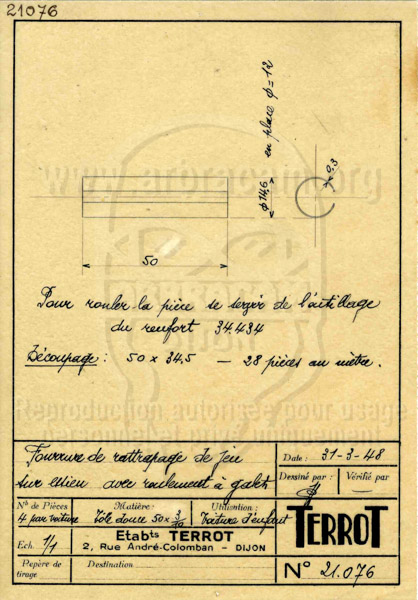 21076
en place φ = 12
φ 14,6
0,3
50
Pour rouler la pièce se servir de l'outillage
du renfort 34.434
Découpage : 50 x 34.5 — 28 pièces au mètre.
www.arbracam.org
Reproduction autorisée pour usage
Fourrure de rattrapage de jeu
sur essieu avec roulement à galets
Date : 31-3-48
Dessiné par :
Vérifié par
Nb de Pièces
4 par voiture
Matière :
Tôle douce 50 x 3/10
Utilisation :
Voiture d'enfant
TERROT
Ech. 1/1
Etabts TERROT
2, Rue André-Colomban – DIJON
Repère de
tirage
Destination
N° 21.076